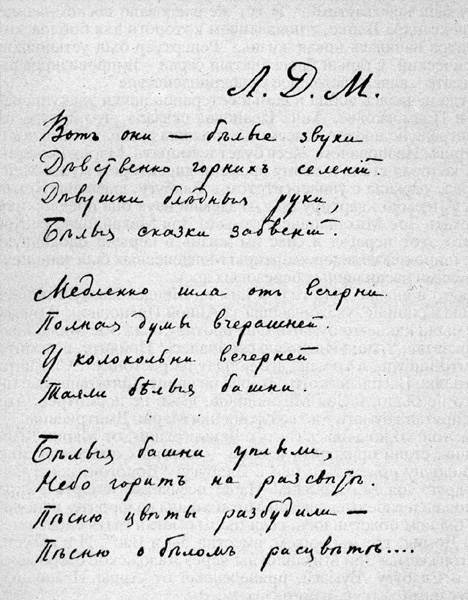 Л. Д. М.
Вотъ они — бѣлые звуки
Дѣвственно горнихъ селеній.
Дѣвушки блѣдныя руки,
Бѣлыя сказки забвеній.
Медленно шла отъ вечерни
Полная думы вчерашней.
У колокольни вечерней
Таяли бѣлыя башни.
Бѣлыя башни уплыли,
Небо горитъ на разсвѣтѣ.
Пѣсню цвѣты разбудили —
Пѣсню о быломъ расцвѣтѣ....